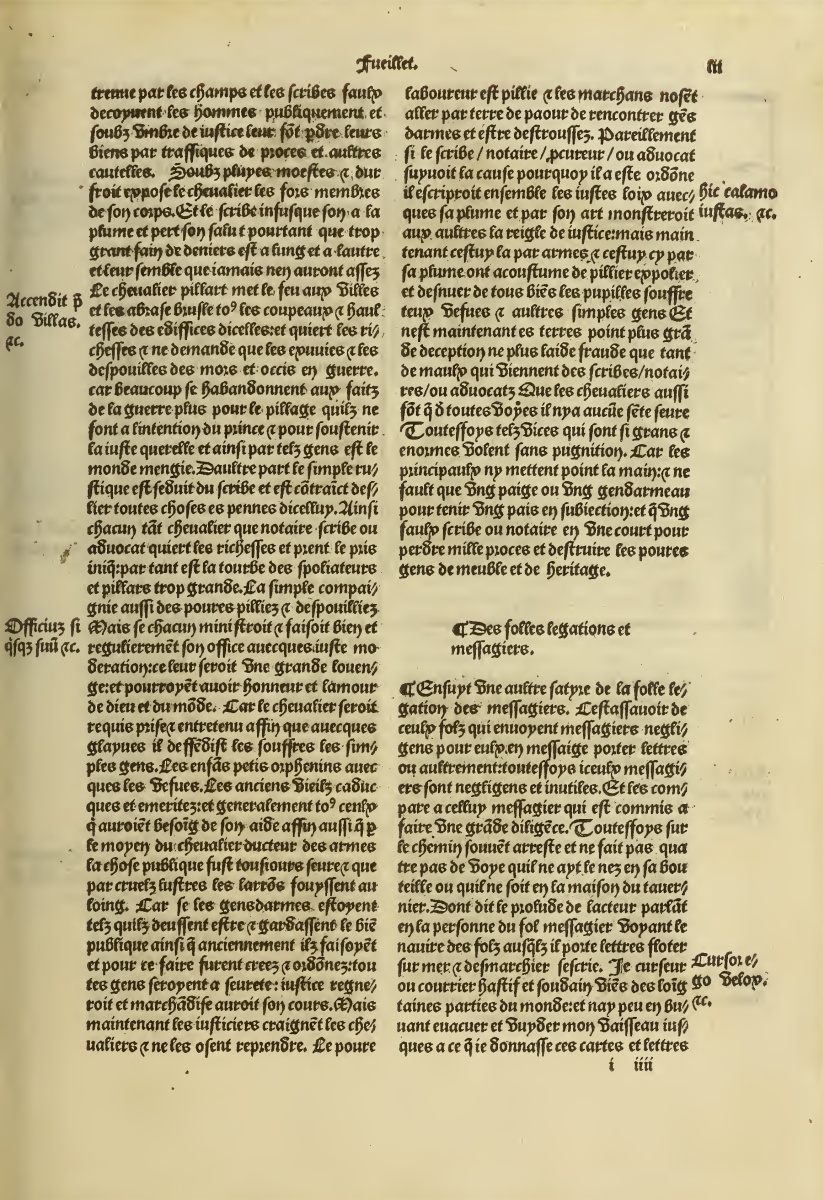 Fueillet.
lii
trenue par les champs et les scribes faulx
decoyuent les hommes publiquement et
soubz vmbre de iustice leur fōt pdre leurs
biens par traffiques de proces et aultres
cautelles. Soubz pluyes moestes ⁊ dur
froit expose le cheualier les fors membres
de son corps. Et le scribe infusque son a sa
plume et pert son salut pourtant que trop
grant fain de deniers est a lung et a lautre
et leur semble que iamais nen auront assez
Le cheualier pillart met le feu aux villes
et les abrase brusle toꝰ les coupeaux ⁊ haul
tesses des ediffices dicelles: et quiert les ri/
chesses ⁊ ne demande que les exuuies ⁊ les
despouilles des mors et occis en guerre.
car beaucoup se habandonnent aux faitz
de la guerre plus pour le pillage quilz ne
font a lintention du prince ⁊ pour soustenir
la iuste querelle et ainsi par telz gens est le
monde mengie. Daultre part le simple ru/
stique est seduit du scribe et est cōtraict des/
lier toutes choses es pennes dicelluy. Ainsi
chacun tāt cheualier que notaire scribe ou
aduocat quiert les richesses et prent le pris
iniq̄: par tant est la tourbe des spoliateurs
et pillars trop grande. La simple compai/
gnie aussi des poures pilliez ⁊ despouilliez
Mais se chacun ministroit ⁊ faisoit bien et
regulieremēt son office auecques iuste mo
deration: ce leur seroit vne grande louen/
ge: et pourroyēt auoir honneur et lamour
de dieu et du mōde. Car le cheualier seroit
requis prise⁊ entretenu affin que auecques
glayues il deffēdist les souffres les sim/
ples gens. Les enfās petis orphenins auec
ques les vefues. Les anciens vieilz caduc
ques et emeritez: et generalement toꝰ ceulx
q̄ auroiēt besoīg de son aide affin aussi q̄ p
le moyen du cheualier ducteur des armes
la chose publique fust tousiours seure ⁊ que
par cruelz lustres les larrōs fouyssent au
loing. Car se les gensdarmes estoyent
telz quilz deussent estre ⁊ gardassent le biē
publique ainsi q̄ anciennement ilz faisoyēt
et pour ce faire furent creez ⁊ ordōnez: tou
tes gens seroyent a seurete: iustice regne/
roit et marchādise auroit son cours. Mais
maintenant les iusticiers craignēt les che/
ualiers ⁊ ne les osent reprendre. Le poure
Accendit p̄
do villas.
⁊c.
Officiuz si
q̄sqz suū ⁊c.
laboureur est pillie ⁊ les marchans nosēt
aller par terre de paour de rencontrer gēs
darmes et estre destroussez. Pareillement
si le scribe / notaire / pcureur / ou aduocat
supuoit la cause pourquoy il a este ordōne
il escriproit ensemble les iustes loix auec/
ques sa plume et par son art monstreroit
aux aultres la reigle de iustice: mais main
tenant cestuy la par armes ⁊ cestuy cy par
sa plume ont acoustume de pillier expolier
et desnuer de tous biēs les pupilles souffre
teux vefues ⁊ aultres simples gens Et
nest maintenant es terres point plus grā
de deception ne plus laide fraude que tant
de maulx qui viennent des scribes / notai/
res / ou aduocatz Que les cheualiers aussi
fōt q̄ d̄ toutes voyes il nya aucūe sēte seure
Touteffoys telz vices qui sont si grans ⁊
enormes volent sans pugnition. Car les
principaulx ny mettent point la main: ⁊ ne
fault que vng paige ou vng gendarmeau
pour tenir vng pais en subiection: et q̄ vng
faulx scribe ou notaire en vne court pour
perdre mille proces et destruire les poures
gens de meuble et de heritage.
hic calamo
iustas. ⁊c.
¶ Des folles legations et
messagiers.
¶ Ensuyt vne aultre satyre de la folle le/
gation des messagiers. Cestassauoir de
ceulx folz qui enuoyent messagiers negli/
gens pour eulx en messaige porter lettres
ou aultrement: touteffoys iceulx messagi/
ers sont negligens et inutiles. Et les com/
pare a celluy messagier qui est commis a
faire vne grāde diligēce. Touteffoys sur
le chemin souuēt arreste et ne fait pas qua
tre pas de voye quil ne ayt le nez en sa bou
teille ou quil ne soit en la maison du tauer/
nier. Dont dit le prosude de lacteur parlāt
en la personne du fol messagier voyant le
nauire des folz ausq̄lz il porte lettres floter
sur mer ⁊ desmarchier leserie. Je curseur
ou courrier hastif et soudain viēs des loīg
taines parties du monde: et nay peu en bu/
uant euacuer et vuyder mon vaisseau ius/
ques a ce q̄ ie donnasse ces cartes et lettres
Cursor e/
go velox.
⁊c.
i iiii